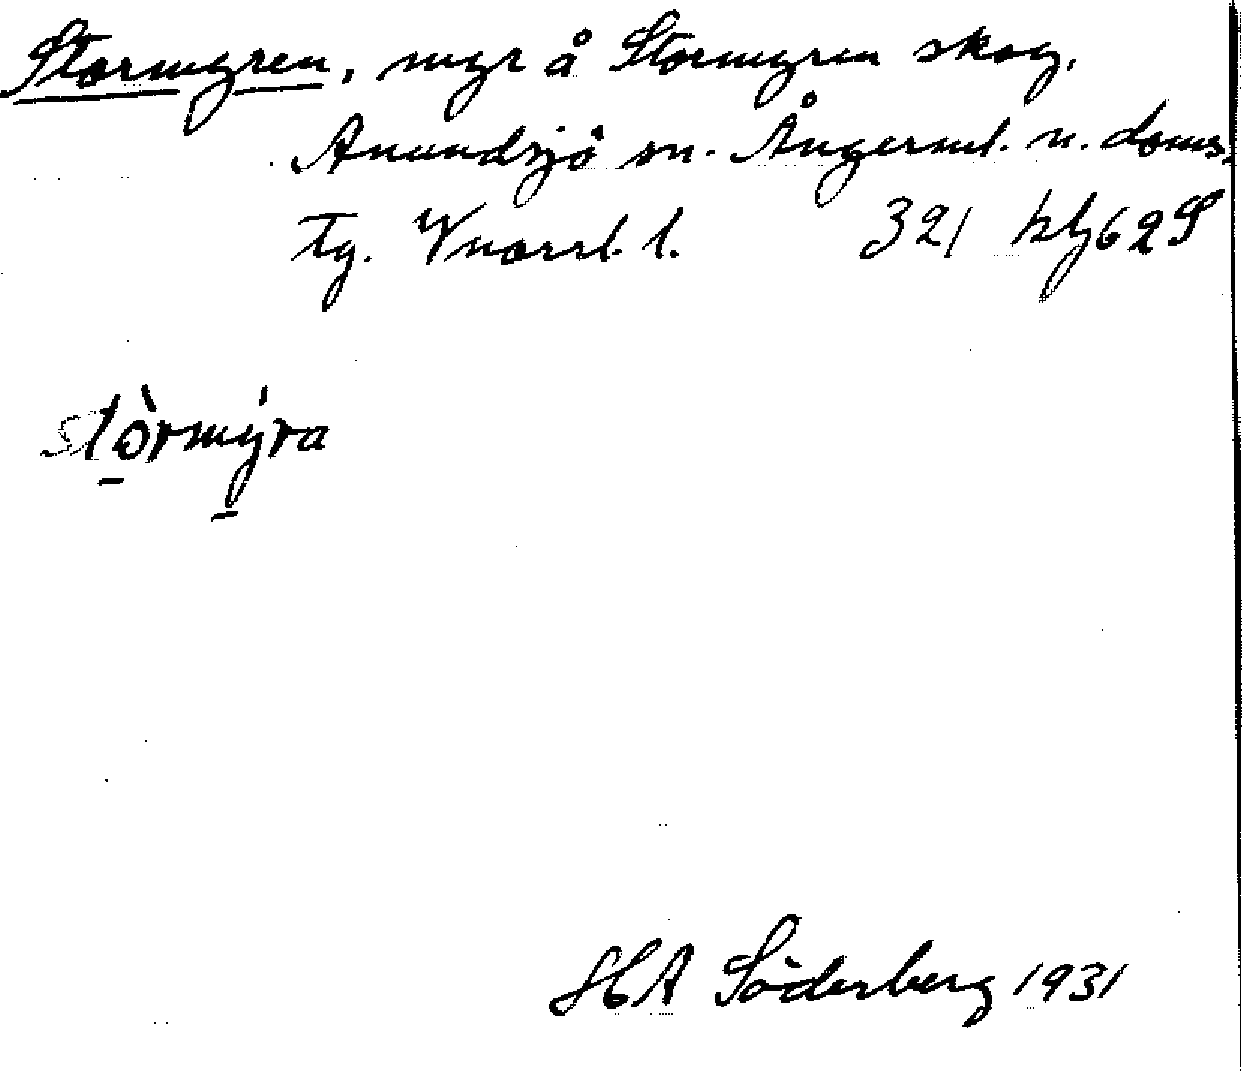 Stormyren, myr å Stormyren skog,
Anundsjö sn. Ångerml. n. doms.
tg. Vnorrl. l. 321
stòrmýra
HA Söderberg 1931